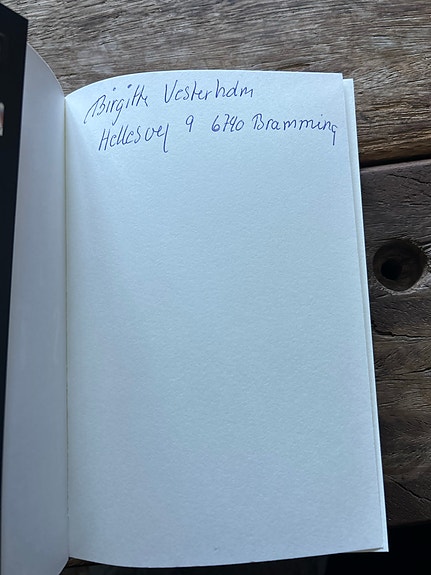 Birgitte Vesterholm
Hellesvej 9 6740 Bramming